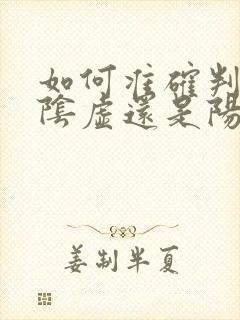 如何准確判
陰虛還是陽
姜制半夏